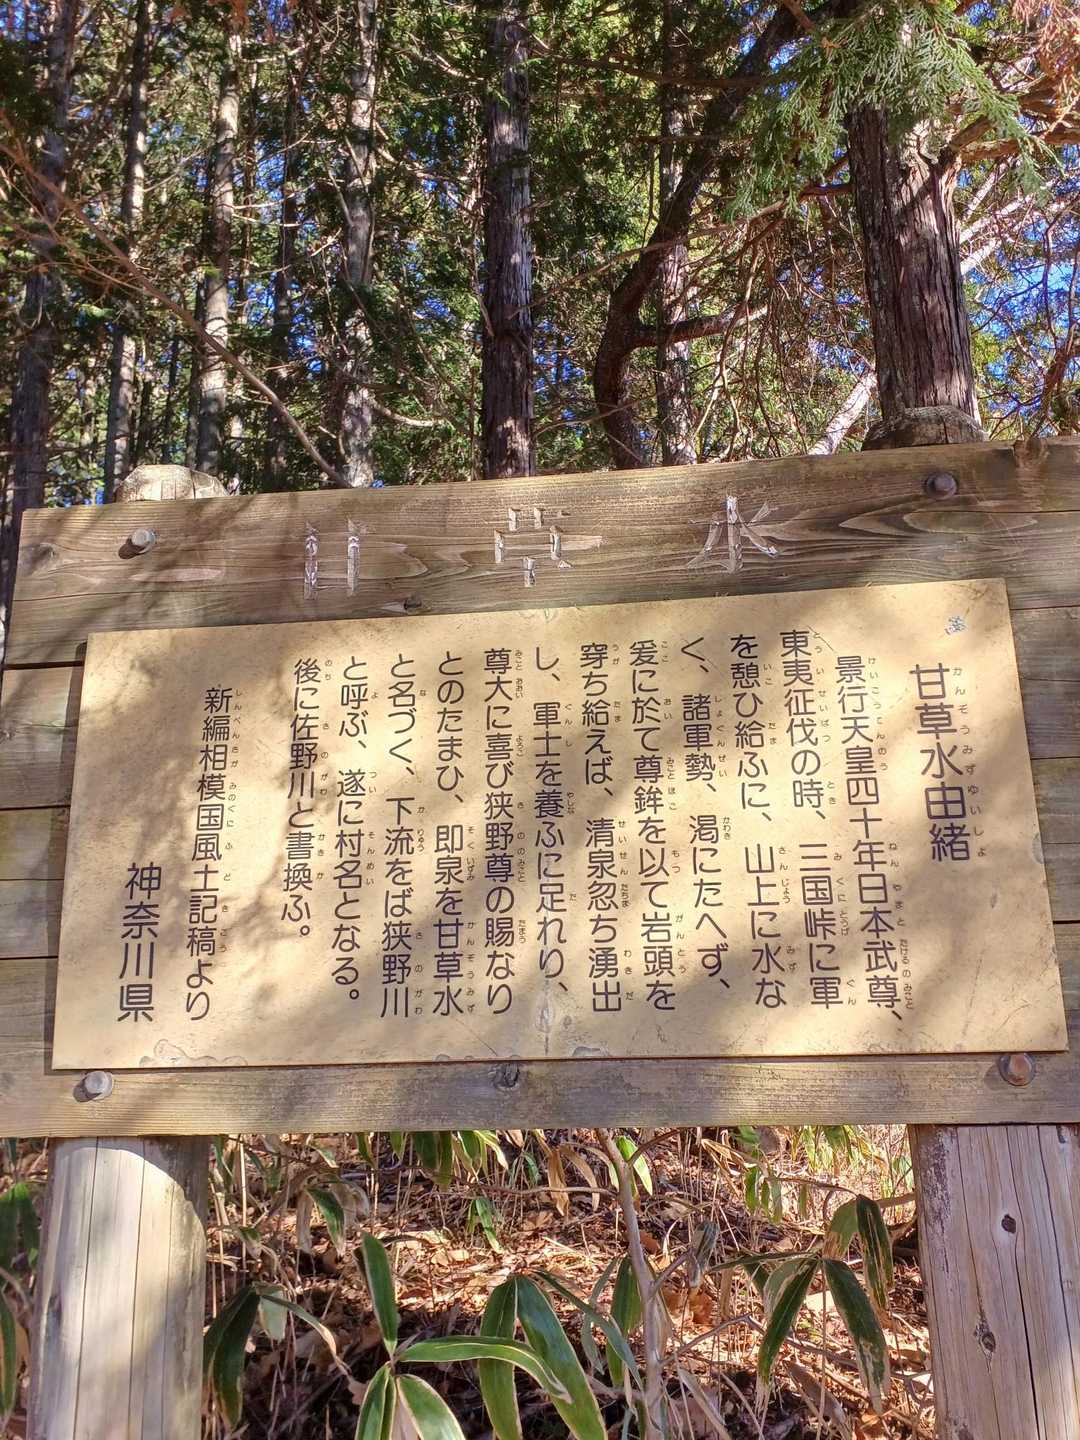 甘草水
甘草水由緒
景行天皇四十年日本武尊、
東夷征伐の時、三国峠に軍
を憩ひ給ふに、山上に水な
く、諸軍勢、渇にたへず、
爰に於て尊鉾を以て岩頭を
穿ち給えば、清泉忽ち湧出
し、軍士を養ふに足れり、
尊大に喜び狭野尊の賜なり
とのたまひ、即泉を甘草水
と名づく、下流をば狭野川
と呼ぶ、遂に村名となる。
後に佐野川と書換ふ。
新編相模国風土記稿より
神奈川県